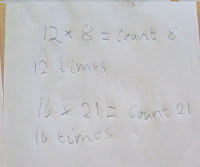 12 × 8 = count 8
12 times
16 × 21 = count 21
16 times